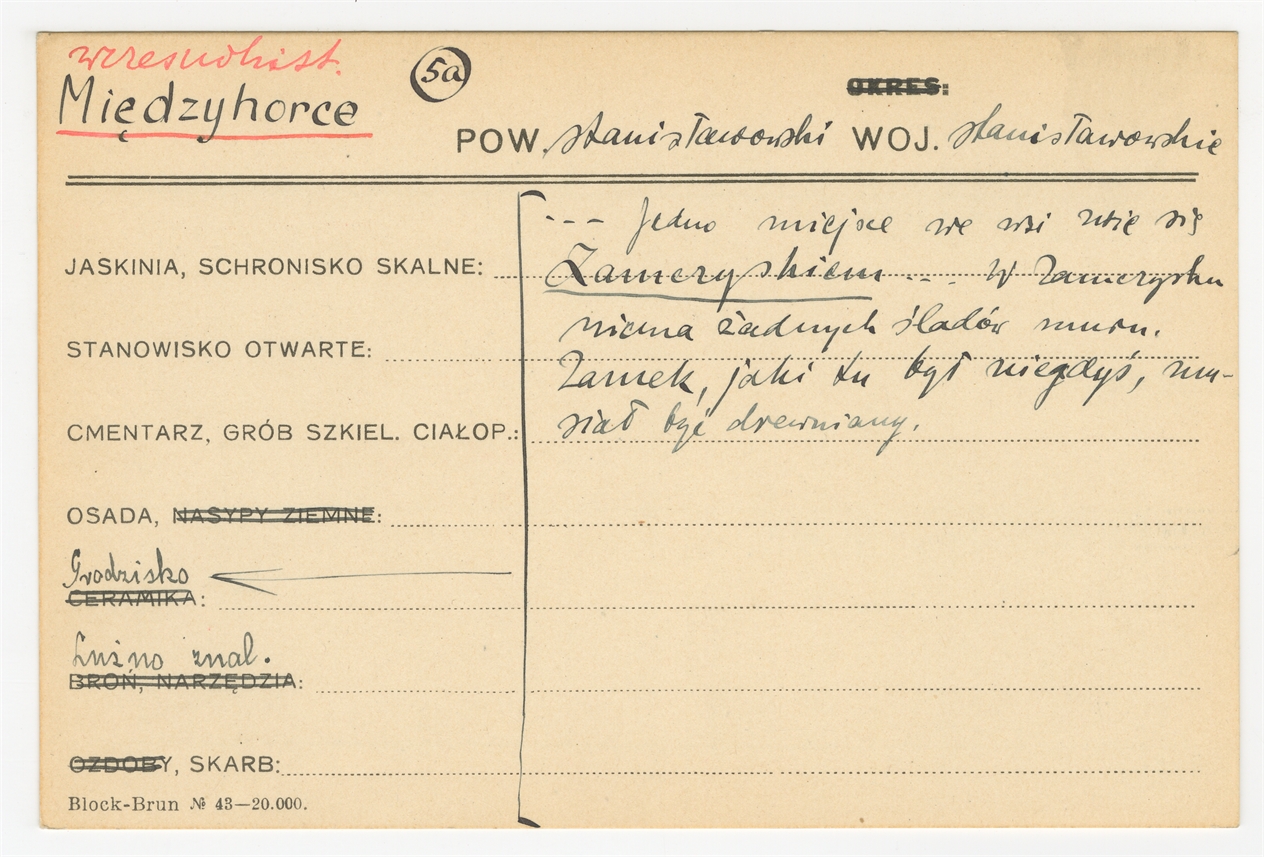 wczesnohist.
Międzyhorce
5a
OKRES:
POW. stanisławowski WOJ. stanisławowskie
--- Jedno miejsce we wsi zwie się
JASKINIA, SCHRONISKO SKALNE:
Zameczyskiem --- W Zameczysku
niema żadnych śladów muru.
STANOWISKO OTWARTE:
Zamek, jaki tu był niegdyś, mu-
siał być drewniany.
CMENTARZ, GRÓB SZKIEL. CIAŁOP.:
OSADA, NASYPY ZIEMNE:
Grodzisko
CERAMIKA:
Luźno znal.
BROŃ, NARZĘDZIA:
OZDOBY, SKARB:
Block-Brun № 43—20.000.